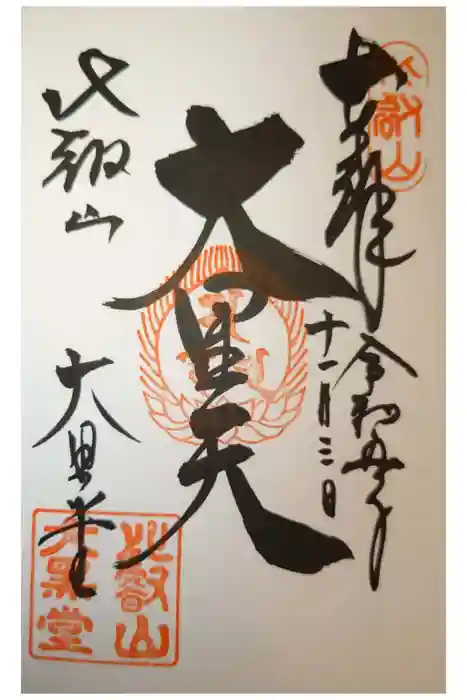 奉拝
令和五年
十一月三日
大黒天
比叡山
大黒堂
比叡山
比叡山
大黒堂